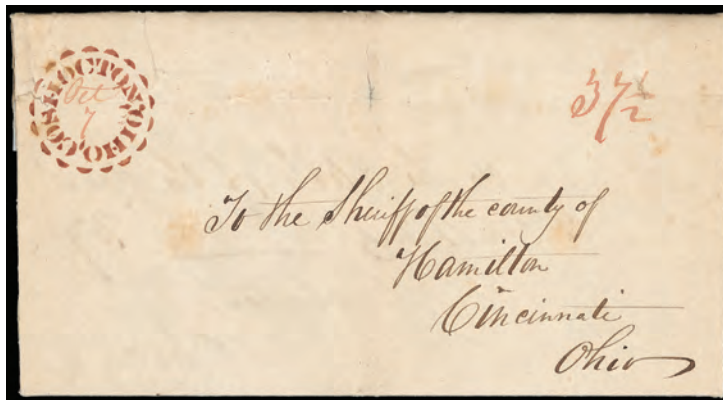 COSHOCTON, OHIO,
Oct
7
37½
To the Sheriff of the county of
Hamilton
Cincinnati
Ohio